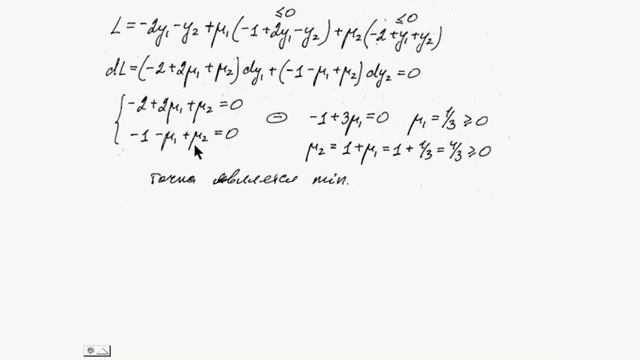 L = -2y₁ - y₂ + μ₁(-1 + 2y₁ - y₂) + μ₂(-2 + y₁ + y₂)
≤0 ≤0
dL = (-2 + 2μ₁ + μ₂)dy₁ + (-1 - μ₁ + μ₂)dy₂ = 0
{ -2 + 2μ₁ + μ₂ = 0 ⊖ -1 + 3μ₁ = 0 μ₁ = 1/3 ≥ 0
-1 - μ₁ + μ₂ = 0 μ₂ = 1 + μ₁ = 1 + 1/3 = 4/3 ≥ 0
точка является min.